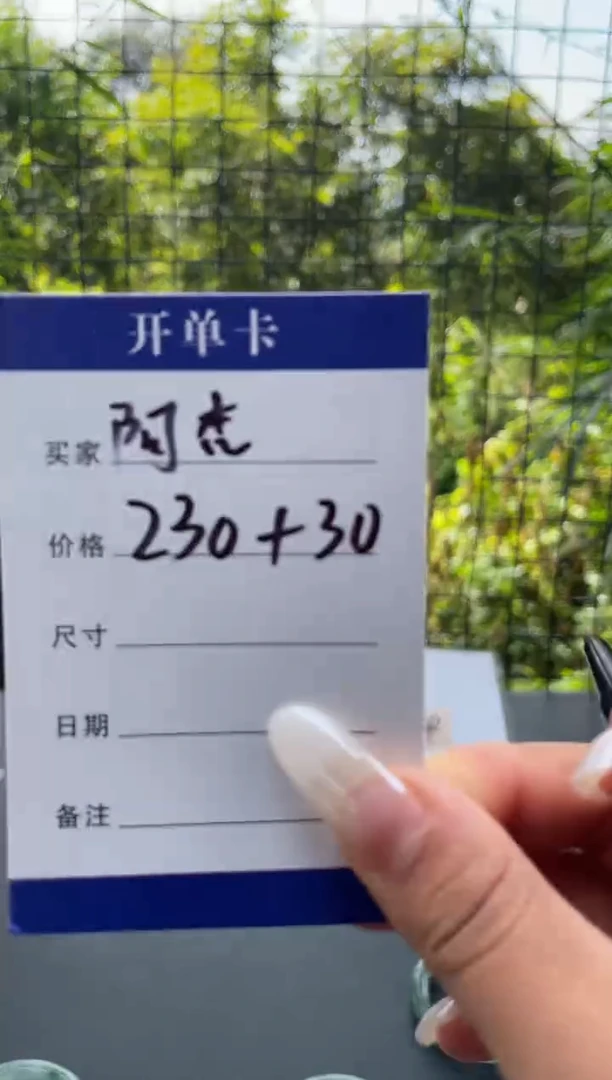 开单卡
买家 阿杰
价格 230+30
尺寸
日期
备注